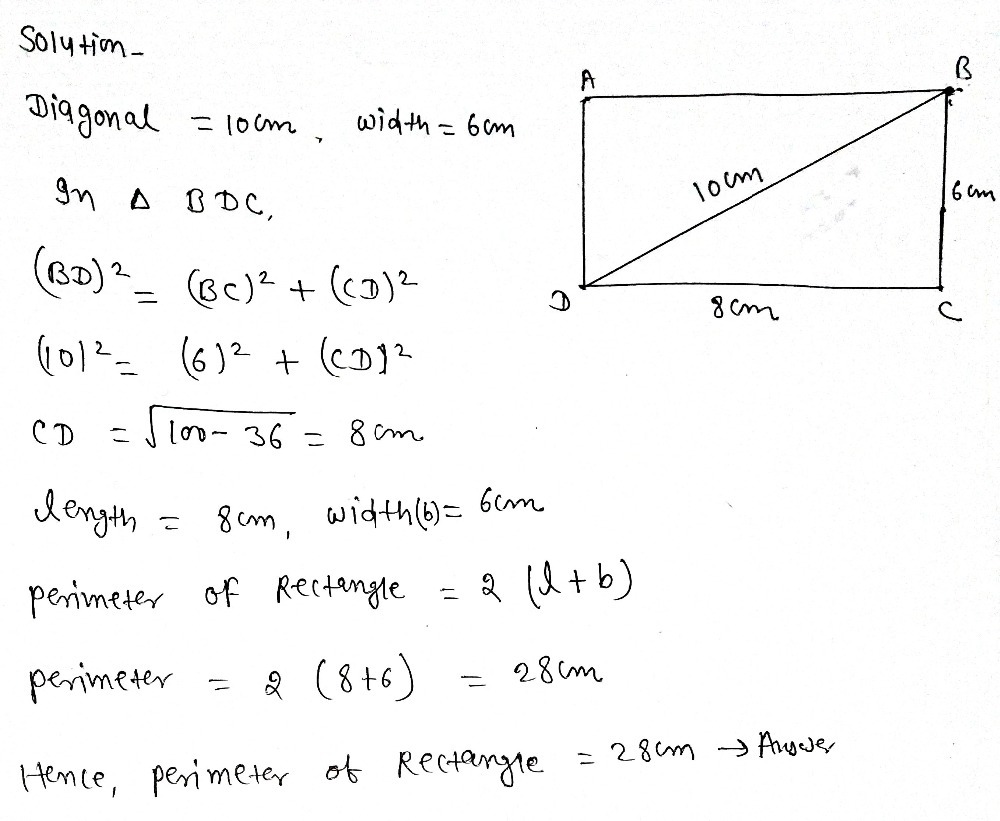 Solution-
Diagonal = 10cm, width = 6cm
In Δ BDC,
(BD)² = (BC)² + (CD)²
(10)² = (6)² + (CD)²
CD = √100-36 = 8cm
length = 8cm, width(b) = 6cm
perimeter of Rectangle = 2 (l+b)
perimeter = 2 (8+6) = 28cm
Hence, perimeter of Rectangle = 28cm → Answer
A
B
10cm
6cm
D
8cm
C